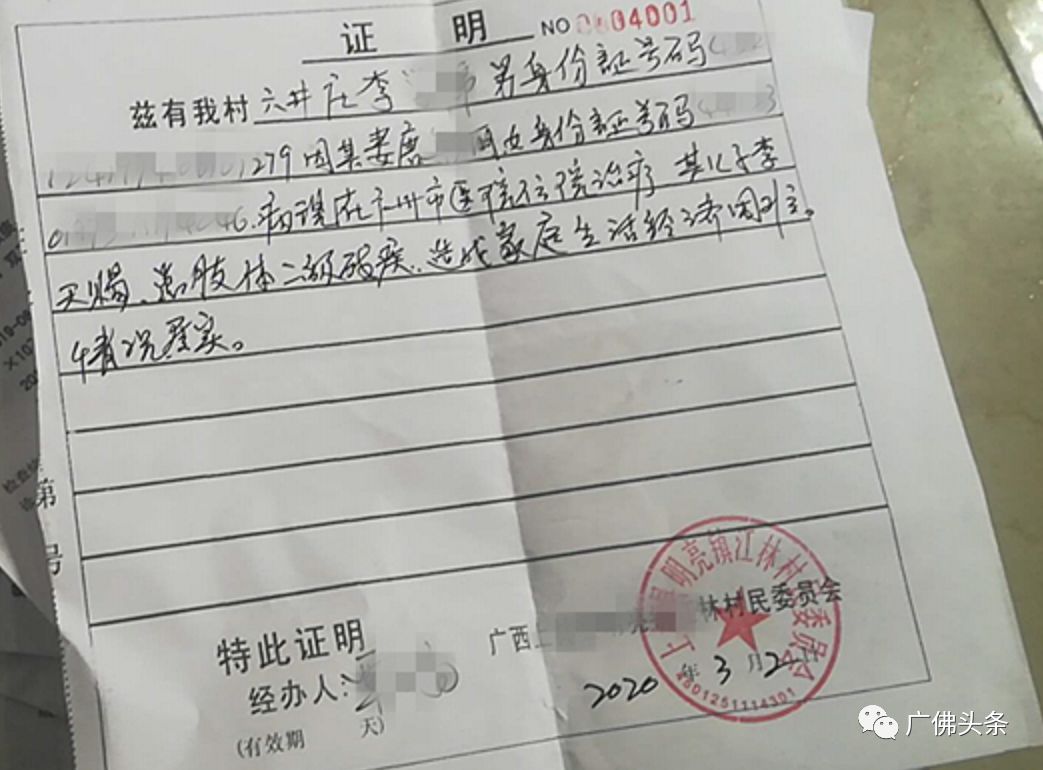 证 明 NO 0604001
兹有我村六井庄李 男身份证号码
279因其妻唐 女身份证号码
病现在广州市医院住院治疗 其儿子李
天赐、患肢体二级残疾、造成家庭生活经济困难。
情况属实。
第
号
特此证明
经办人:
(有效期 天)
广西上 林村民委员会
2020年3月24日
上 明亮镇江林村 委员会
4501251114301
广佛头条